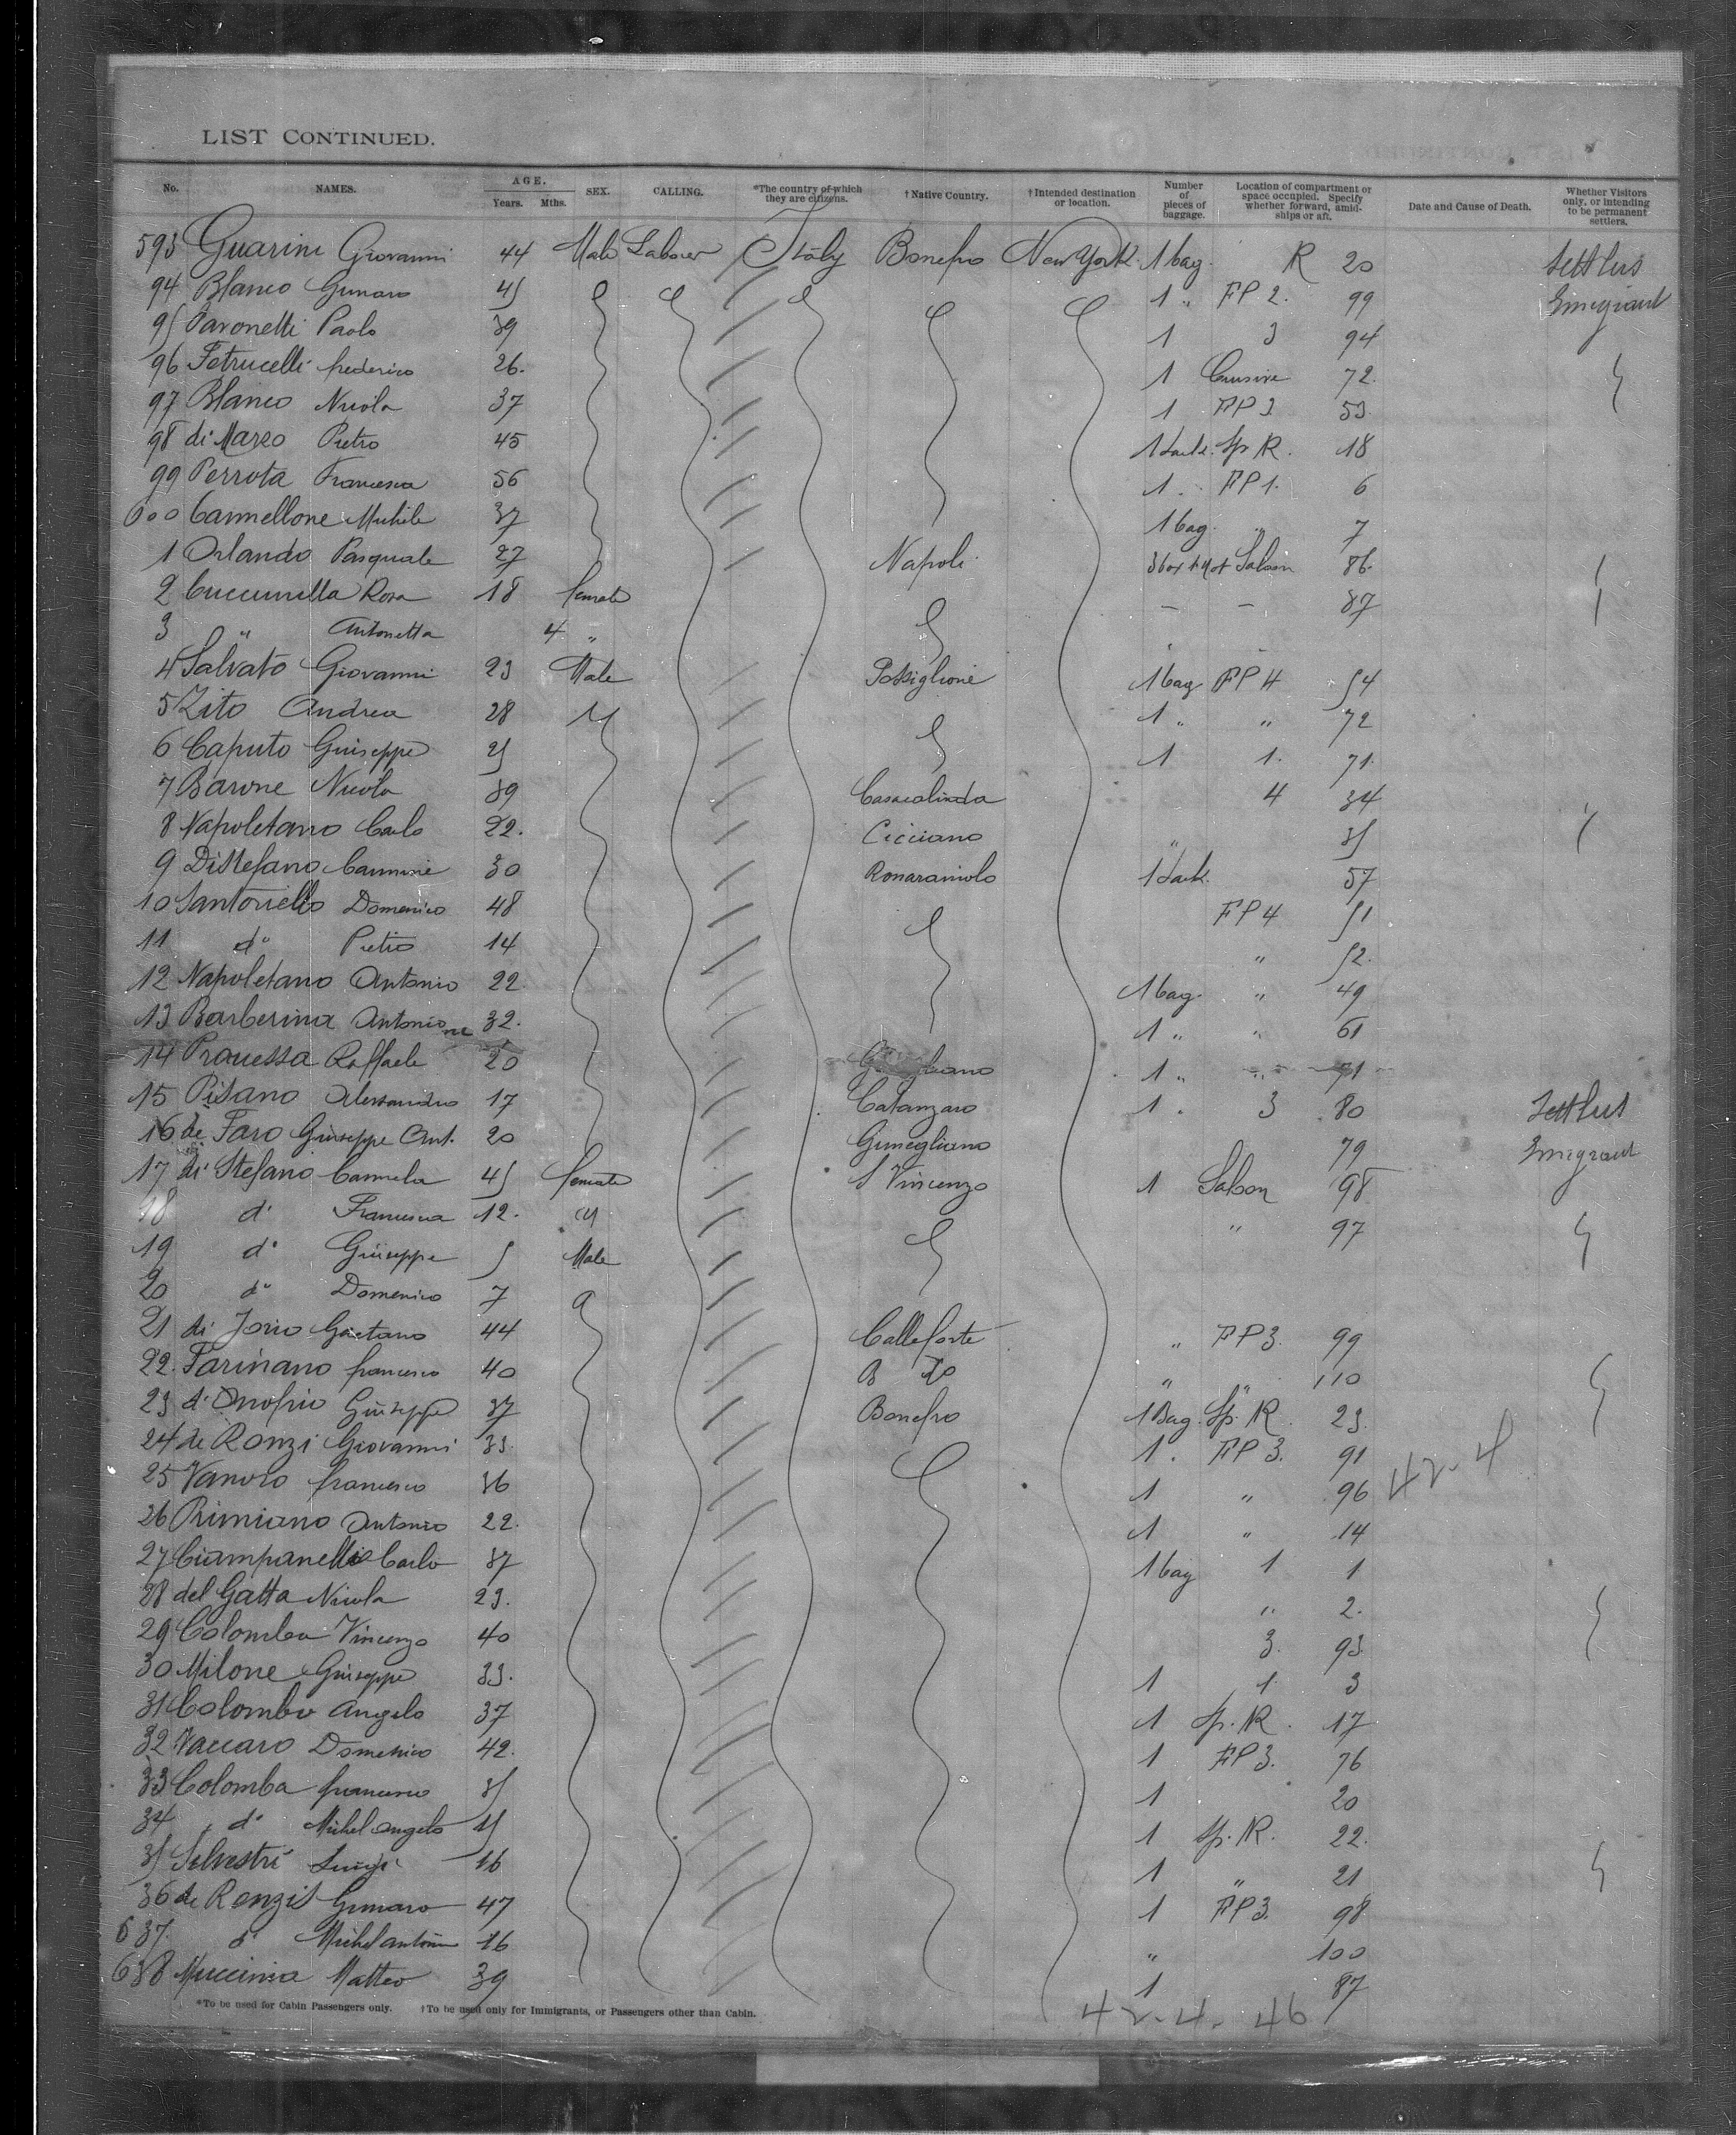 LIST CONTINUED.
No. NAMES. AGE. Years. Mths. SEX. CALLING. *The country of which they are citizens. †Native Country. †Intended destination or location. Number of pieces of baggage. Location of compartment or space occupied. Specify whether forward, amidships or aft. Date and Cause of Death. Whether Visitors only, or intending to be permanent settlers.
593 Guarini Giovanni 44 Male Labourer Italy Bonefro New York 1 bag. R 20 Settlers
94 Blanco 45 1 " FP 2. 99 Emigrant
95 Paolo 39 1 3 94
96 26. 1 72.
97 Blanco Nicola 37 1 FP 3 53
98 di Marzo Pietro 45 1 Sack. Sp R. 18
99 Perrota Francesca 56 1 . FP 1. 6
600 Michele 37 1 bag. " 7
1 Orlando Pasquale 27 Napoli Saloon 86.
2 Rosa 18 female – – 87
3 " Antonetta 4 "
4 Salvato Giovanni 23 Male 1 bag FP 4 54
5 Zito Andrea 28 " 1 " " 72
6 Caputo Giuseppe 25 1 1. 71.
7 Barone Nicola 39 Casacalinda 4 34
8 Napoletano Carlo 22. Cicciano " 35
9 DiStefano Carmine 30 1 Sack. 57
10 Santoriello Domenico 48 FP 4 51
11 do Pietro 14 " 52.
12 Napoletano Antonio 22 1 bag. " 49
13 Barberina Antonio 32. 1 " " 61
14 Raffaele 20 1 " " 71
15 Pisano Alessandro 17 Catanzaro 1 . 3 80 Settlers
16 de Faro Giuseppe Ant. 20 79 Emigrant
17 di Stefano Carmela 45 female S Vincenzo 1 Saloon 98
18 do Francesca 12. " " 97
19 do Giuseppe 5 Male
20 do Domenico 7
21 di Jorio Gaetano 44 Calleforte " FP 3. 99
22. Farinano francesco 40 B do " " 110
23 d'Onofrio Giuseppe 37 Bonefro 1 Bag. Sp. R. 23.
24 de Ronzi Giovanni 33. 1. FP 3. 91
25 francesco 36 1 " 96
26 Rimiano Antonio 22. 1 " 14
27 Ciampanelli Carlo 37 1 bag 1 1
28 del Gatta Nicola 23. " 2.
29 Colomba Vincenzo 40 3. 93
30 Milone Giuseppe 33. 1 1. 3
31 Colombo Angelo 37 1 Sp. R. 17
32 Vaccaro Domenico 42. 1 FP 3. 76
33 Colomba francesco 35 1 20
34 do Michelangelo 45 1 Sp. R. 22.
35 Silvestri Luigi 16 1 " 21
36 de Renzis 47 1 FP 3. 98
637. do Michelantonio 16 " 100
638 Muccinia Matteo 39 1 87
*To be used for Cabin Passengers only. †To be used only for Immigrants, or Passengers other than Cabin.